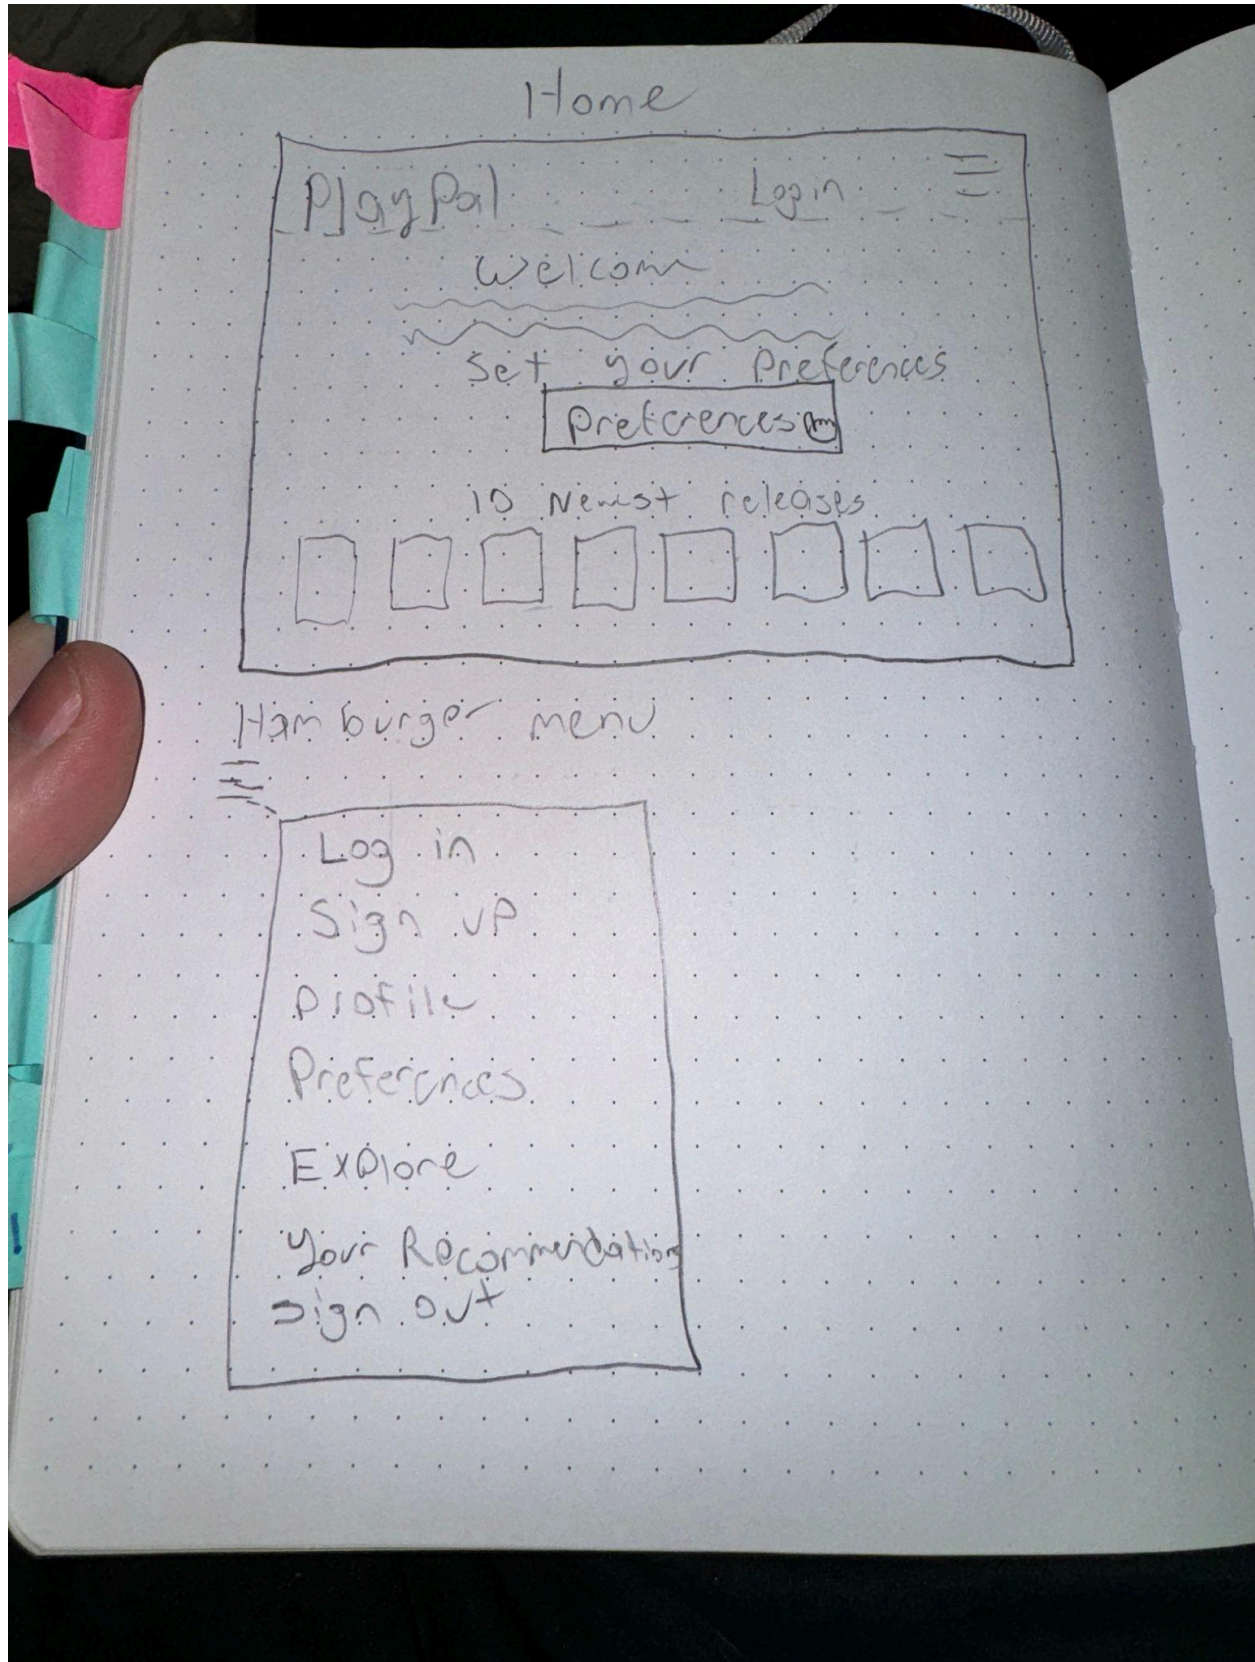 Home
PlayPal Login
Welcome
Set your Preferences
Preferences
10 Newest releases
Hamburger menu
Log in
Sign up
Profile
Preferences
Explore
Your Recommendations
Sign out
!